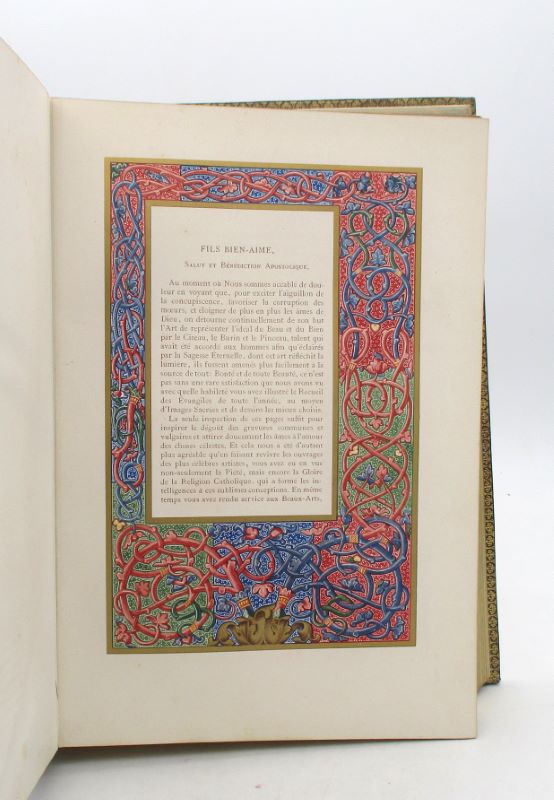 FILS BIEN-AIMÉ,
Salut et Bénédiction Apostolique.
Au moment où Nous sommes accablé de dou-
leur en voyant que, pour exciter l'aiguillon de
la concupiscence, favoriser la corruption des
mœurs, et éloigner de plus en plus les âmes de
Dieu, on détourne continuellement de son but
l'Art de représenter l'idéal du Beau et du Bien
par le Ciseau, le Burin et le Pinceau, talent qui
avait été accordé aux hommes afin qu'éclairés
par la Sagesse Éternelle, dont cet art réfléchit la
lumière, ils fussent amenés plus facilement à la
source de tout: Bonté et de toute Beauté, ce n'est
pas sans une rare satisfaction que nous avons vu
avec quelle habileté vous avez illustré le Recueil
des Évangiles de toute l'année, au moyen
d'Images Sacrées et de dessins les mieux choisis.
La seule inspection de ces pages suffit pour
inspirer le dégoût des gravures communes et
vulgaires et attirer doucement les âmes à l'amour
des choses célestes. Et cela nous a été d'autant
plus agréable qu'en faisant revivre les ouvrages
des plus célèbres artistes, vous avez eu en vue
non-seulement la Piété, mais encore la Gloire
de la Religion Catholique, qui a formé les in-
telligences à ces sublimes conceptions. En même
temps vous avez rendu service aux Beaux-Arts,